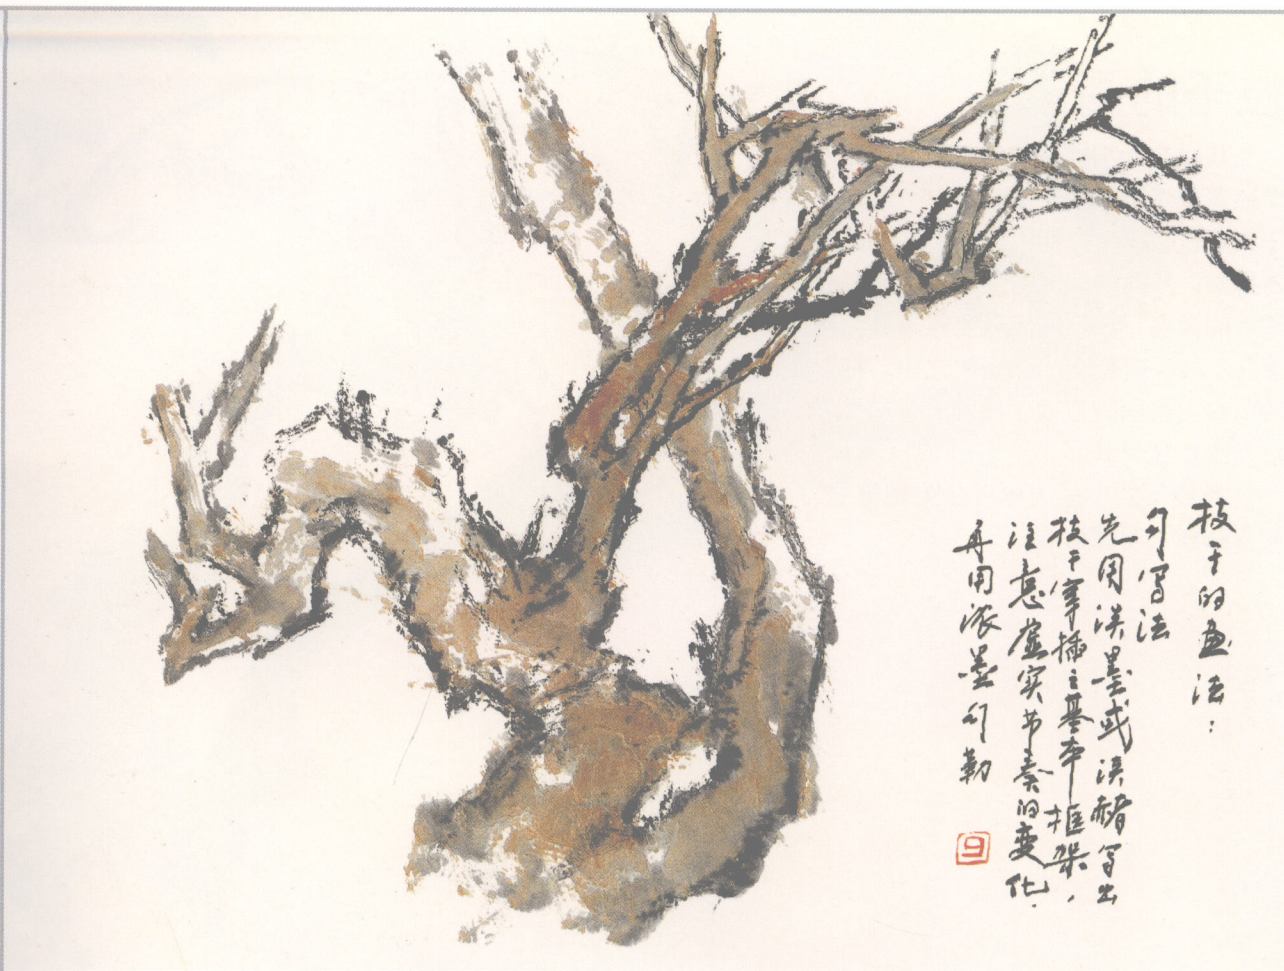 枝干的画法：
勾写法
先用淡墨或淡赭写出
枝干穿插之基本框架，
注意虚实节奏的变化.
再用浓墨勾勒